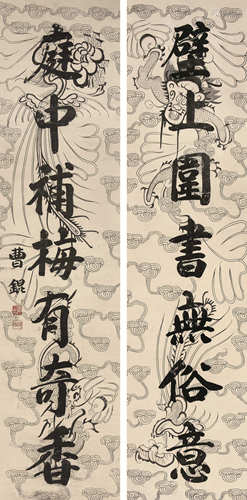 壁上圖書無俗意
庭中補梅有奇香
曹錕